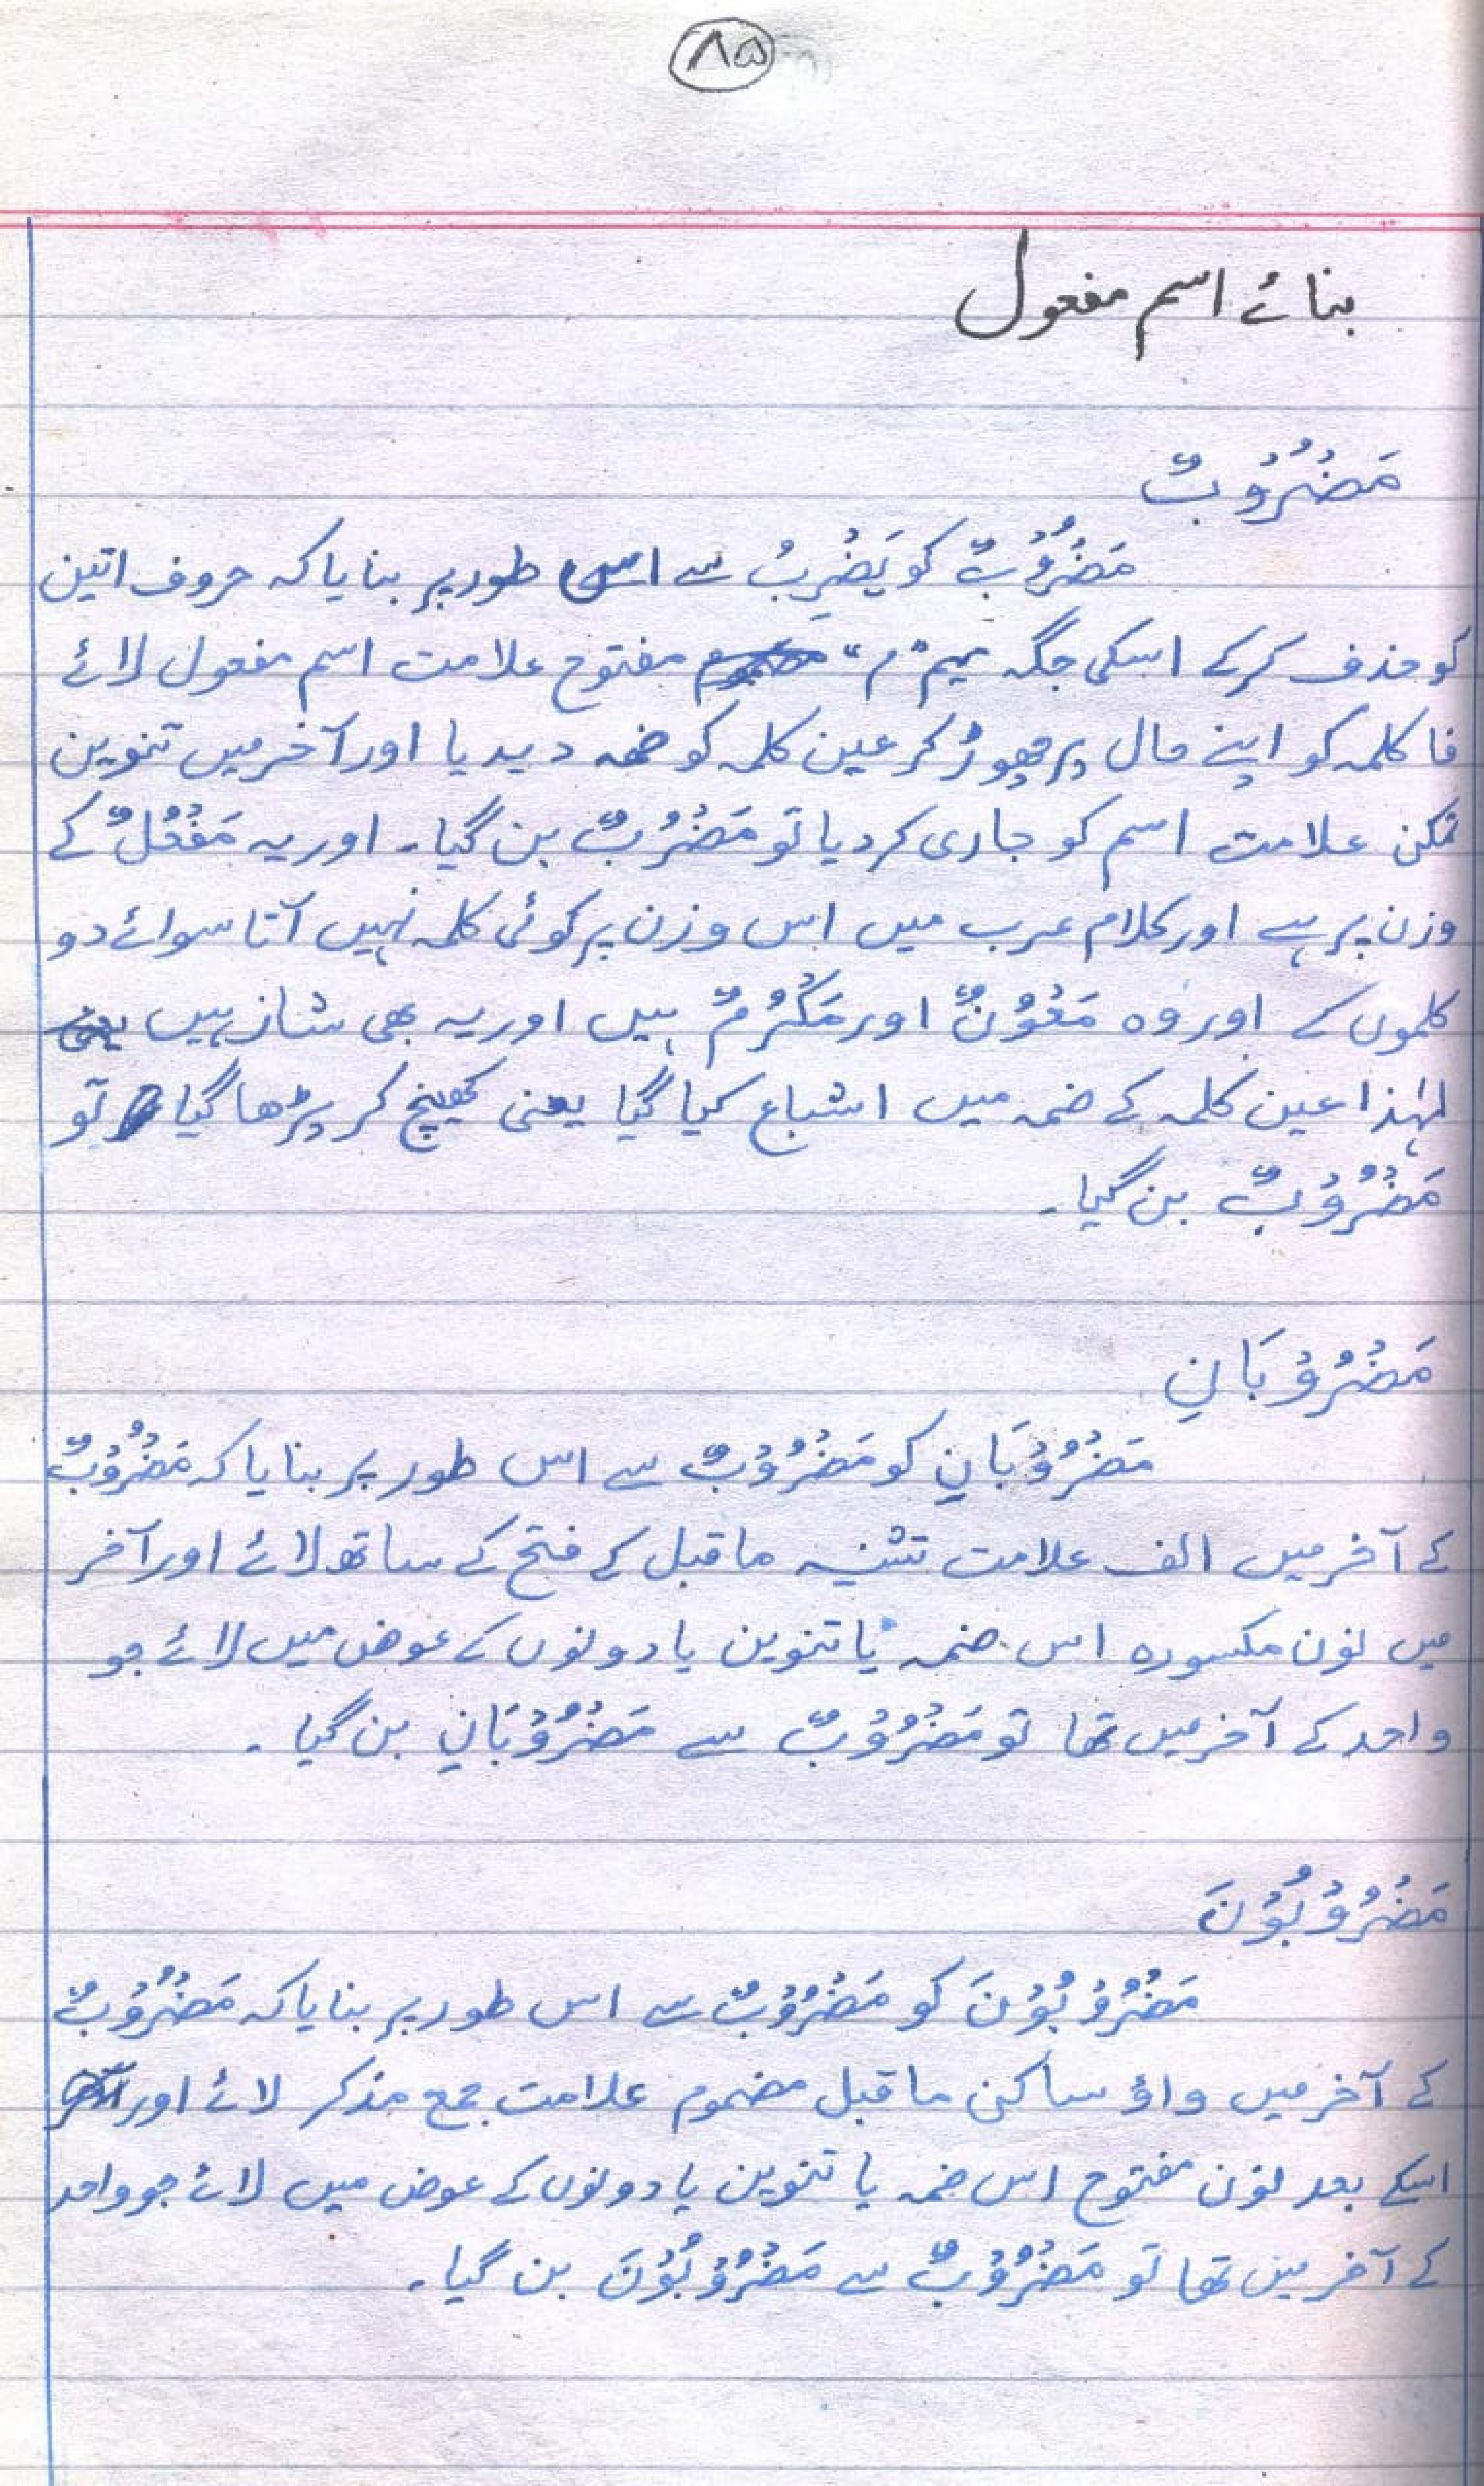 ۸۵
بنائے اسم مفعول
مَضْرُوْبٌ
مَضْرُوْبٌ کو یَضْرِبُ سے اس طور پر بنایا کہ حروف اتین
کو حذف کرکے اسکی جگہ میم "م" مفتوح علامت اسم مفعول لائے
فا کلمہ کو اپنے حال پر چھوڑ کر عین کلمہ کو ضمہ دیدیا اور آخر میں تنوین
تمکن علامت اسم کو جاری کردیا تو مَضْرُبٌ بن گیا۔ اور یہ مَفْعُلٌ کے
وزن پر ہے اور کلام عرب میں اس وزن پر کوئی کلمہ نہیں آتا سوائے دو
کلموں کے اور وہ مَعْوُنٌ اور مَکْرُمٌ ہیں اور یہ بھی شاز ہیں
لہٰذا عین کلمہ کے ضمہ میں اشباع کیا گیا یعنی کھینچ کر پڑھا گیا تو
مَضْرُوْبٌ بن گیا۔
مَضْرُوْبَانِ
مَضْرُوْبَانِ کو مَضْرُوْبٌ سے اس طور پر بنایا کہ مَضْرُوْبٌ
کے آخر میں الف علامت تثنیہ ماقبل کے فتح کے ساتھ لائے اور آخر
میں نون مکسورہ اس ضمہ یا تنوین یا دونوں کے عوض میں لائے جو
واحد کے آخر میں تھا تو مَضْرُوْبٌ سے مَضْرُوْبَانِ بن گیا ۔
مَضْرُوْبُوْنَ
مَضْرُوْبُوْنَ کو مَضْرُوْبٌ سے اس طور پر بنایا کہ مَضْرُوْبٌ
کے آخر میں واؤ ساکن ماقبل مضموم علامت جمع مذکر لائے اور
اسکے بعد نون مفتوح اس ضمہ یا تنوین یا دونوں کے عوض میں لائے جو واحد
کے آخر میں تھا تو مَضْرُوْبٌ سے مَضْرُوْبُوْنَ بن گیا۔